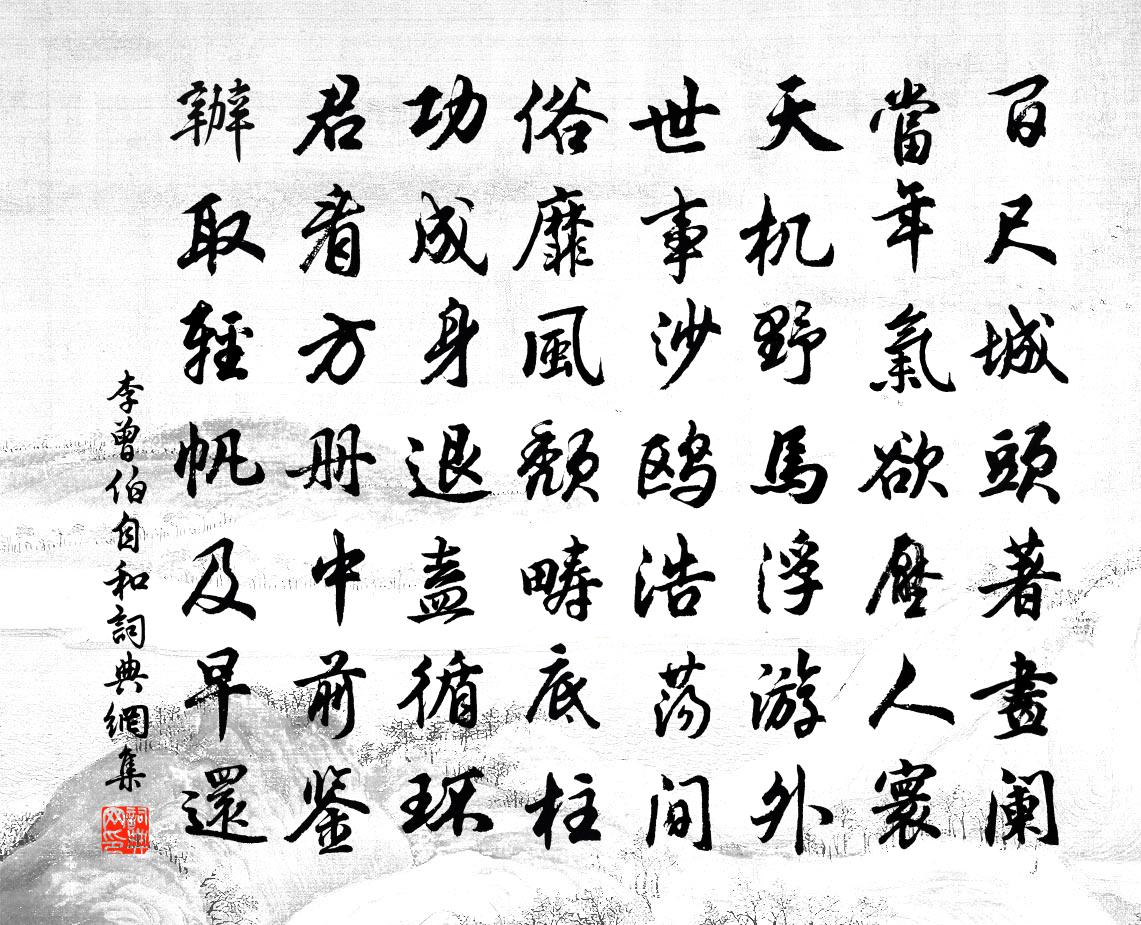 百尺城頭著畫阑
當年氣欲壓人寰
天机野馬浮游外
世事沙鸥浩荡间
俗靡風頹畴底柱
功成身退盍循环
君看方册中前鉴
辦取輕帆及早還
李曾伯自和詞典網集